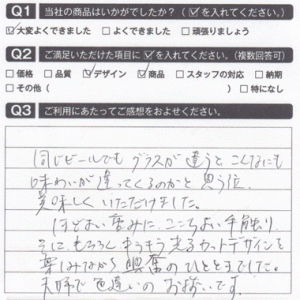 Q1 当社の商品はいかがでしたか？（☑を入れてください。）
☑大変よくできました □よくできました □頑張りましょう
Q2 ご満足いただけた項目に☑を入れてください。（複数回答可）
□価格 □品質 ☑デザイン ☑商品 □スタッフの対応 □納期
□その他（ ） □特になし
Q3 ご利用にあたってご感想をおよせください。
同じビールでもグラスが違うとこんなにも
味わいが違ってくるのかと思う位、
美味しくいただけました。
ほどよい重みに、ここちよい手触り
そにもちろんキラキラ光るカットデザインを
楽しみながら 興奮のひとときでした。
夫婦で色違いのお揃いです。